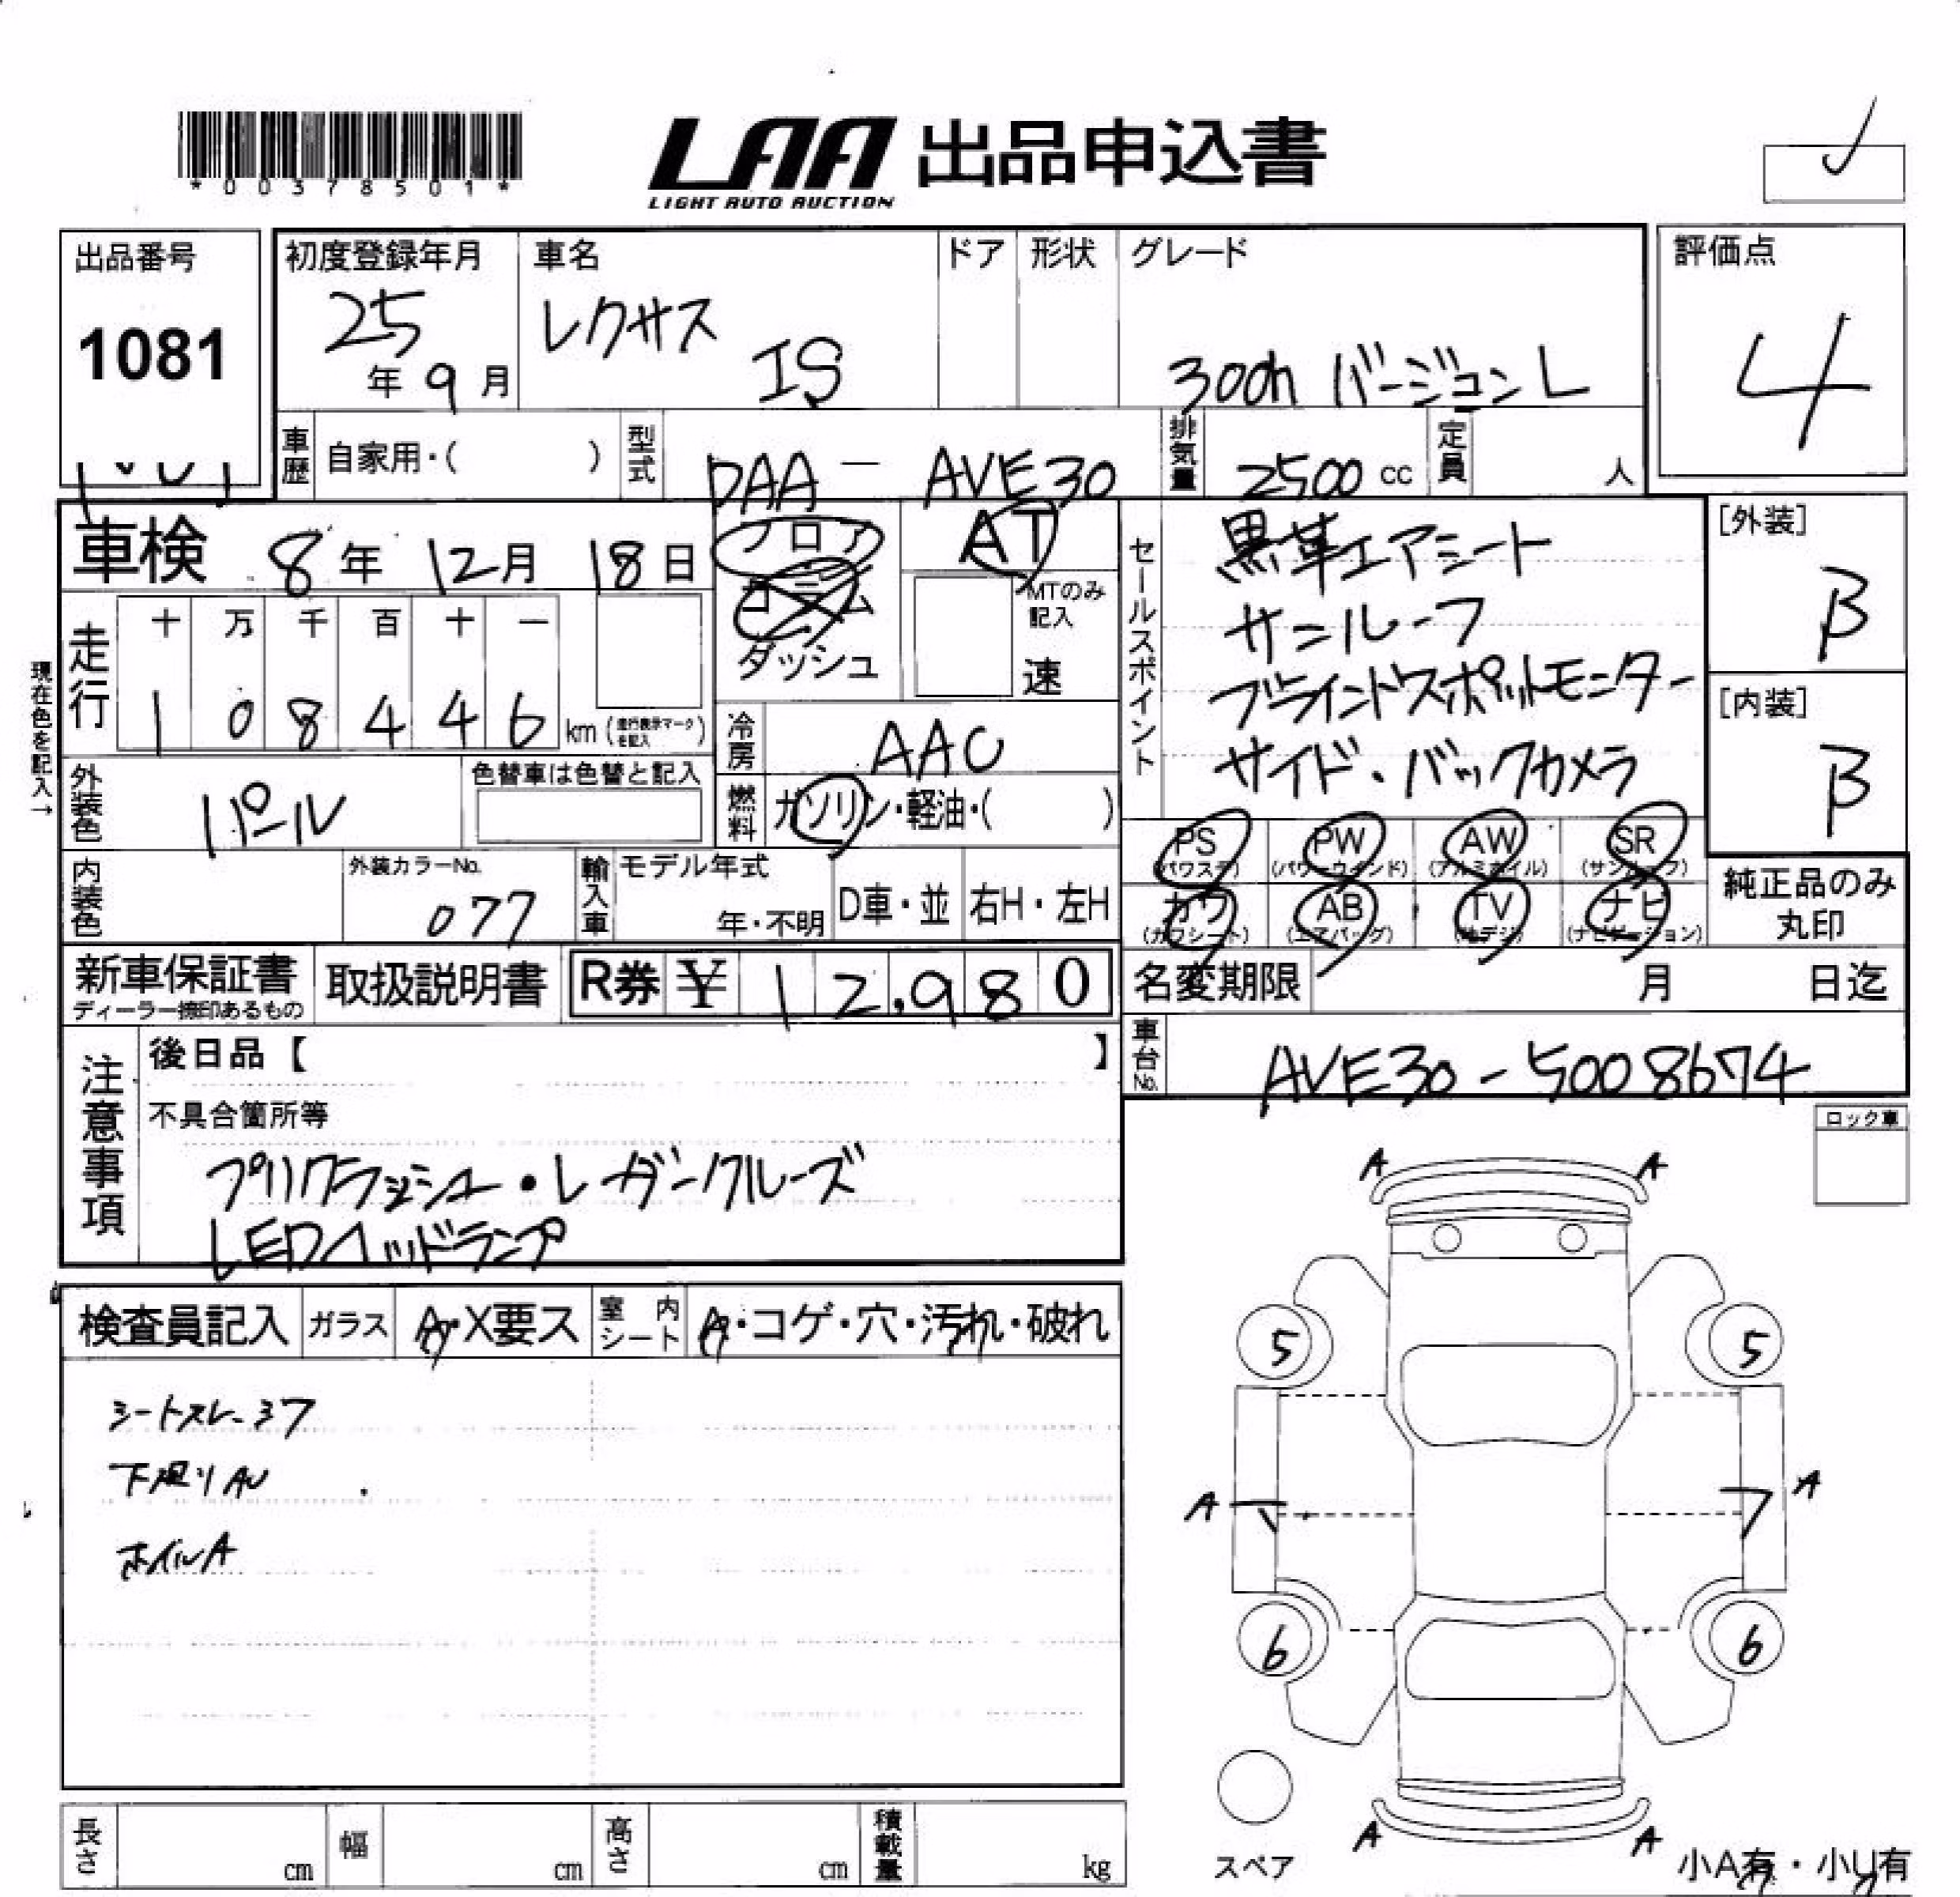 *00378501*
LAA 出品申込書
LIGHT AUTO AUCTION
出品番号
1081
初度登録年月
25年9月
車名
レクサス IS
ドア
形状
グレード
300h バージョンL
評価点
4
車歴 自家用・( )
型式 DAA-AVE30
排気量 2500 cc
定員 人
車検 8年12月18日
フロア
コラム
ダッシュ
AT
MTのみ記入
速
セールスポイント
黒革エアシート
サンルーフ
ブラインドスポットモニター
サイド・バックカメラ
[外装]
B
[内装]
B
現在色を記入→
走行
十 万 千 百 十 一
1 0 8 4 4 6 km (走行表示マークを記入)
冷房 AAC
外装色 パール
色替車は色替と記入
燃料 ガソリン・軽油・( )
PS (パワステ)
PW (パワーウインド)
AW (アルミホイル)
SR (サンルーフ)
カワ (カワシート)
AB (エアバッグ)
TV (地デジ)
ナビ (ナビゲーション)
純正品のみ
丸印
内装色
外装カラーNo.
077
輸入車
モデル年式
年・不明
D車・並
右H・左H
新車保証書
ディーラー捺印あるもの
取扱説明書
R券 ¥ 12,980
名変期限 月 日迄
車台No. AVE30-5008674
注意事項
後日品【 】
不具合箇所等
プリクラッシュ・レーダークルーズ
LEDヘッドランプ
ロック車
検査員記入
ガラス A・X要ス
室内シート A・コゲ・穴・汚れ・破れ
シートスレ
下廻り AU
ホイルA
A A
5 5
A A
6 6
A A
スペア
小A有・小U有
長さ cm
幅 cm
高さ cm
積載量 kg